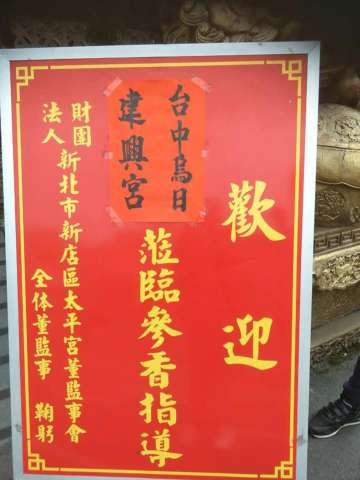 歡迎
台中烏日
建興宮
蒞臨參香指導
財團
法人
新北市新店區太平宮董監事會
全体董監事 鞠躬